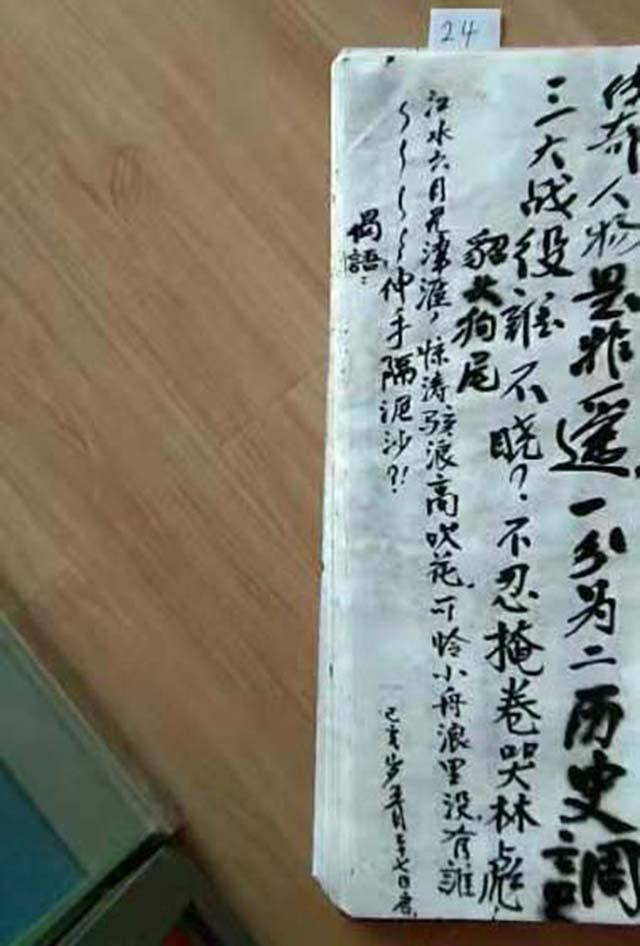 24
传奇人物是非遥一分为二历史調
三大战役誰不晓？不忍掩卷哭林彪
狗尾
江水六月无津涯，惊涛骇浪高吹花，可怜小舟浪里没，有誰
伸手隔泥沙？！
偈語：
己亥岁